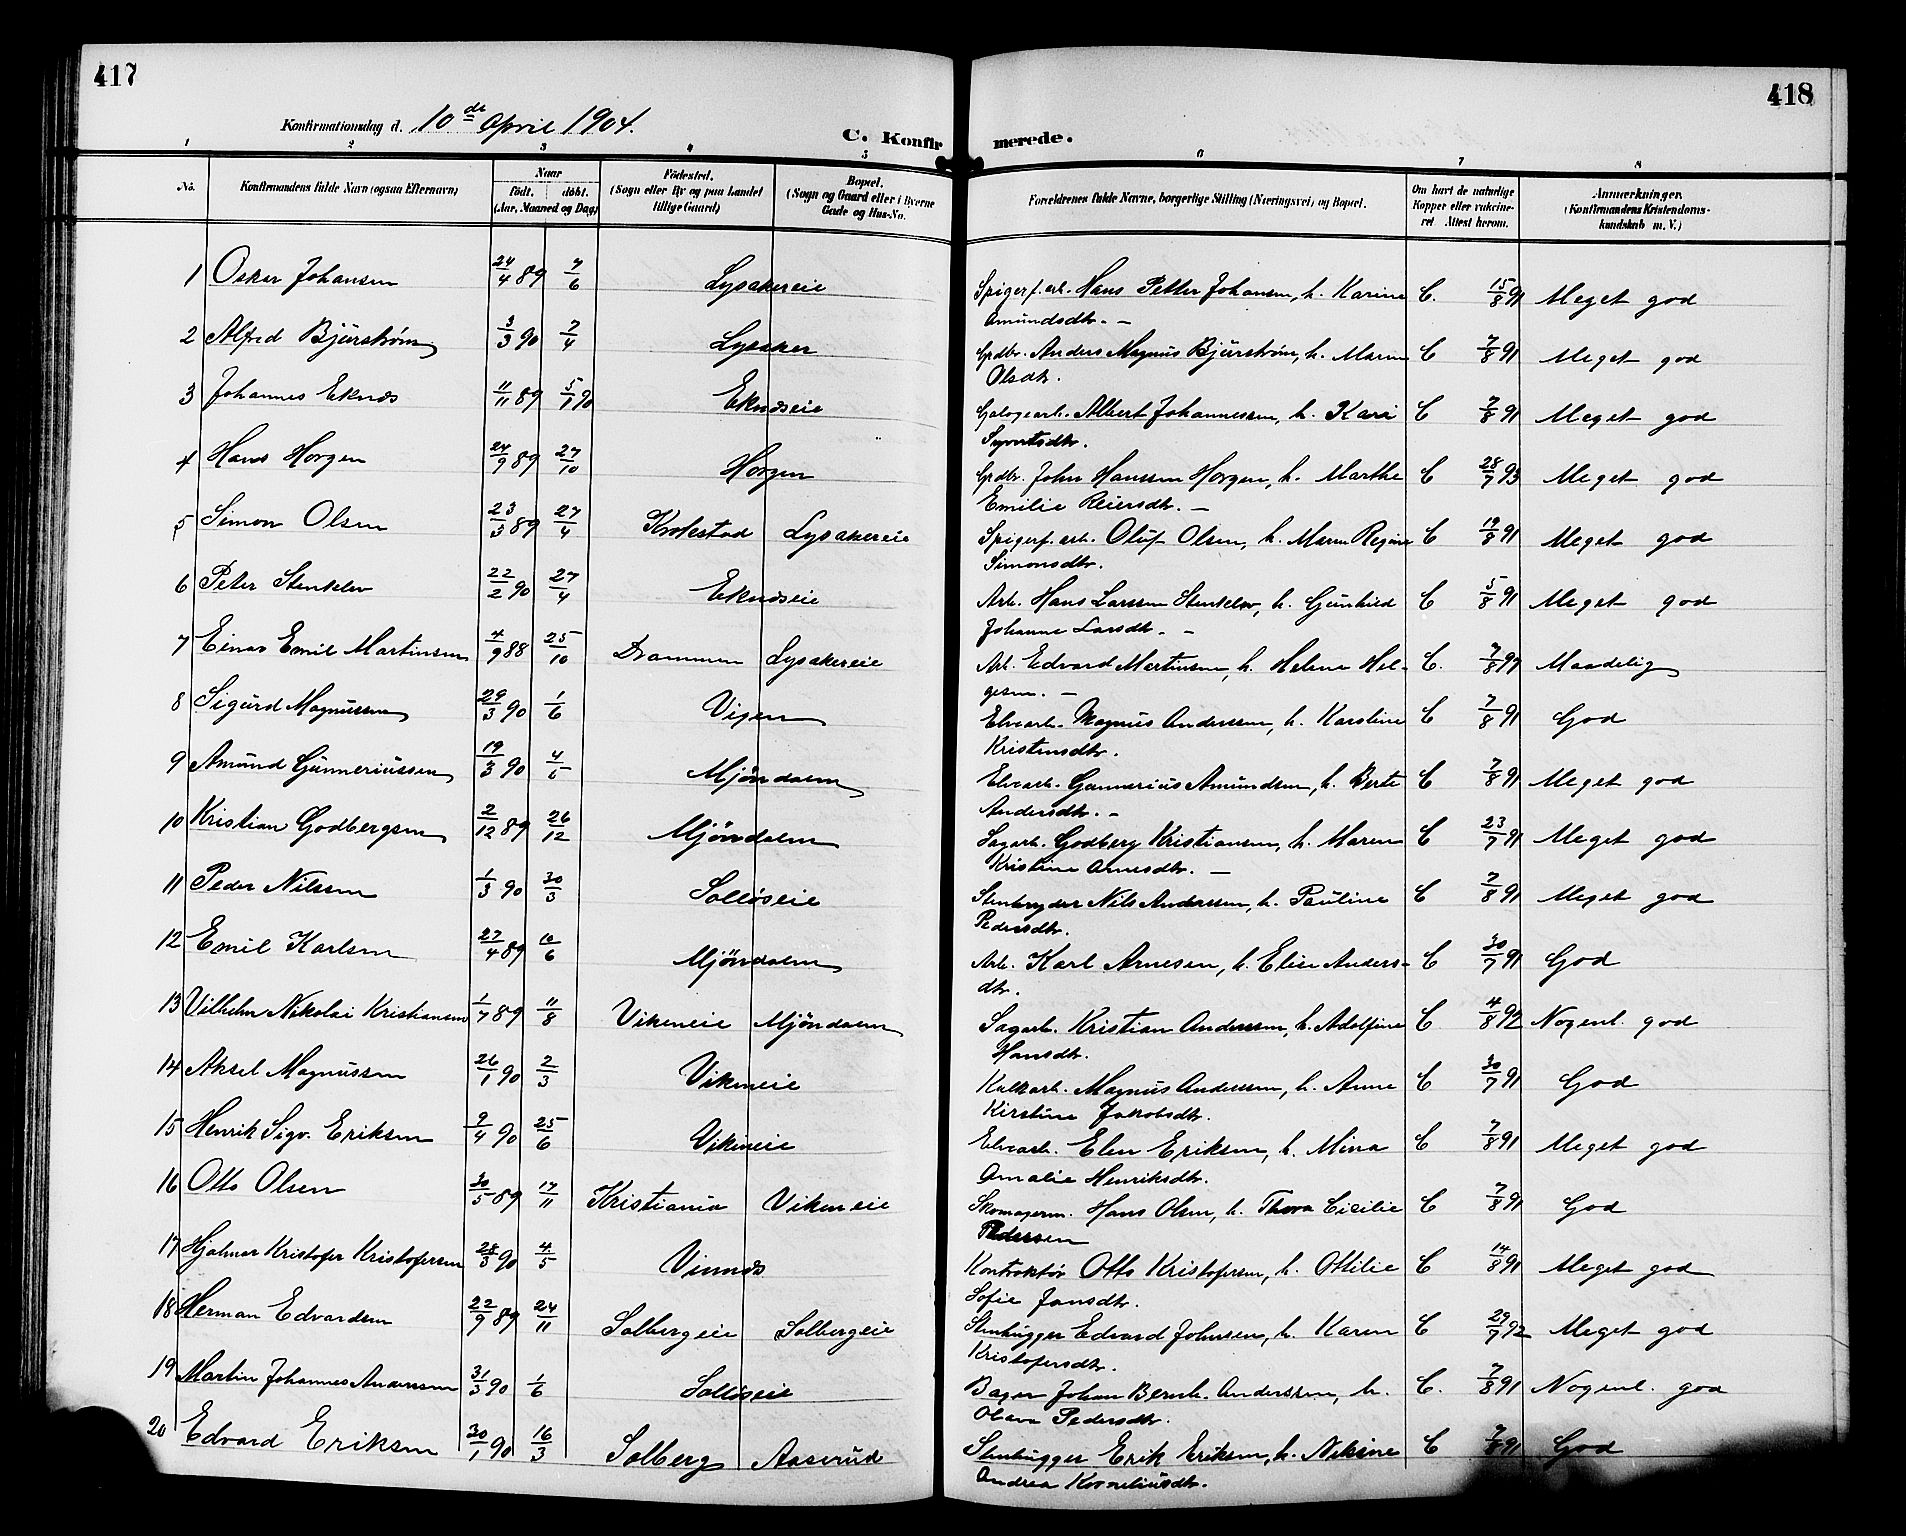 417
Konfirmationsdag d. 10de April 1904.
C. Konfir
1 2 3 4 5
No.
Konfirmandens fulde Navn (ogsaa Efternavn)
Naar født. døbt. (Aar, Maaned og Dag)
Fødested. (Sogn eller By og paa Landet tillige Gaard)
Bopæl. (Sogn og Gaard eller i Byerne Gade og Hus-No.
1 Oskar Johansen 24/4 89 7/6 Lysakereie
2 Alfred Bjürström 3/3 90 7/4 Lysaker
3 Johannes Eknæs 11/11 89 5/1 90 Eknæseie
4 Hans Horgen 24/9 89 27/10 Horgen
5 Simon Olsen 23/3 89 27/4 Krokstad Lysakereie
6 Peter Stenklev 22/2 90 27/4 Eknæseie
7 Einar Emil Martinsen 4/9 88 25/10 Drammen Lysakereie
8 Sigurd Magnussen 29/3 90 1/6 Viken
9 Amund Gunneriussen 19/3 90 4/5 Mjöndalen
10 Kristian Godbergsen 2/12 89 26/12 Mjöndalen
11 Peder Nilssen 1/3 90 30/3 Solløseie
12 Emil Karlsen 27/4 89 10/6 Mjöndalen
13 Vilhelm Nikolai Kristiansen 1/7 89 11/8 Vikeneie Mjöndalen
14 Aksel Magnussen 26/1 90 2/3 Vikeneie
15 Henrik Sigv. Eriksen 9/4 90 25/6 Vikeneie
16 Otto Olsen 30/5 89 17/11 Kristiania Vikeneie
17 Hjalmar Kristofer Kristofersen 28/3 90 4/5 Vinnæs
18 Herman Edvardsen 22/9 89 24/11 Solbergeie Solbergeie
19 Martin Johannes Anderssen 31/3 90 1/6 Solløseie
20 Edvard Eriksen 30/1 90 16/3 Solberg Aaserud
418
merede.
6 7 8
Forældrenes fulde Navne, borgerlige Stilling (Næringsvei) og Bopæl.
Om havt de naturlige Kopper eller vakcineret Attest herom.
Anmærkninger. (Konfirmandens Kristendomskundskab m. V.)
Spigerf.arb. Hans Petter Johansen, h. Karine C. 15/8 91 Meget god
Amundsdtr. –
Grdbr. Anders Magnus Bjürström, h. Maren C 7/8 91 Meget god
Olsdtr.
Albert Johannessen, h. Kari C 7/8 91 Meget god
Syvertsdtr.
Grdbr. John Hanssen Horgen, h. Marthe C 28/7 93 Meget god
Emilie Reiersdtr. –
Spigerf.arb. Oluf Olsen, h. Maren Regine C 19/8 91 Meget god
Simonsdtr.
Arb. Hans Larssen Stenklev, h. Gunhild C 5/8 91 Meget god
Johanne Larsdtr. –
Arb. Edvard Martinsen, h. Helene Hel- C. 7/8 97 Maadelig
gesen. –
Elvearb. Magnus Anderssen, h. Karoline C 7/8 91 God
Kristensdtr.
Elvearb. Gunnerius Amundsen, h. Berte C 7/8 91 Meget god
Andersdtr. –
Sagarb. Godberg Kristiansen, h. Maren C 23/7 91 Meget god
Kristine Arnesdtr. –
Stenbryder Nils Anderssen, h. Pauline C 7/8 91 Meget god
Pedersdtr.
Arb. Karl Arnesen, h. Elise Anders- C 30/7 91 God
dtr.
Sagarb. Kristian Anderssen, h. Adolfine C 4/8 92 Nogenl. god
Hansdtr.
Kalkarb. Magnus Anderssen, h. Anne C 30/7 91 God
Kirstine Jakobsdtr.
Elvearb. Elen Eriksen, h. Mina C 7/8 91 Meget god
Amalie Henriksdtr.
Skomagerm. Hans Olsen, h. Thora Cicilie C 7/8 91 God
Pedersen
Kontroktör Otto Kristofersen, h. Ottilie C 14/8 91 Meget god
Sofie Jansdtr.
Stenhugger Edvard Johnsen, h. Karen C 29/7 92 Meget god
Kristofersdtr.
Bager Johan Bernh. Anderssen, h. C. 7/8 91 Nogenl. god
Olava Pedersdtr.
Stenhugger Erik Eriksen, h. Nilsine C 7/8 91 God
Andrea Korneliusdtr.